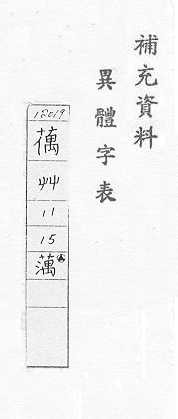 補充資料
異體字表
12019
艸
11
15
蕅